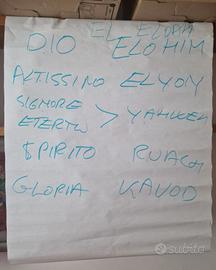 EL ELOAH
DIO ELOHIM
ALTISSIMO ELYON
SIGNORE
ETERNO > YAHWEH
SPIRITO RUACH
GLORIA KAVOD
subito